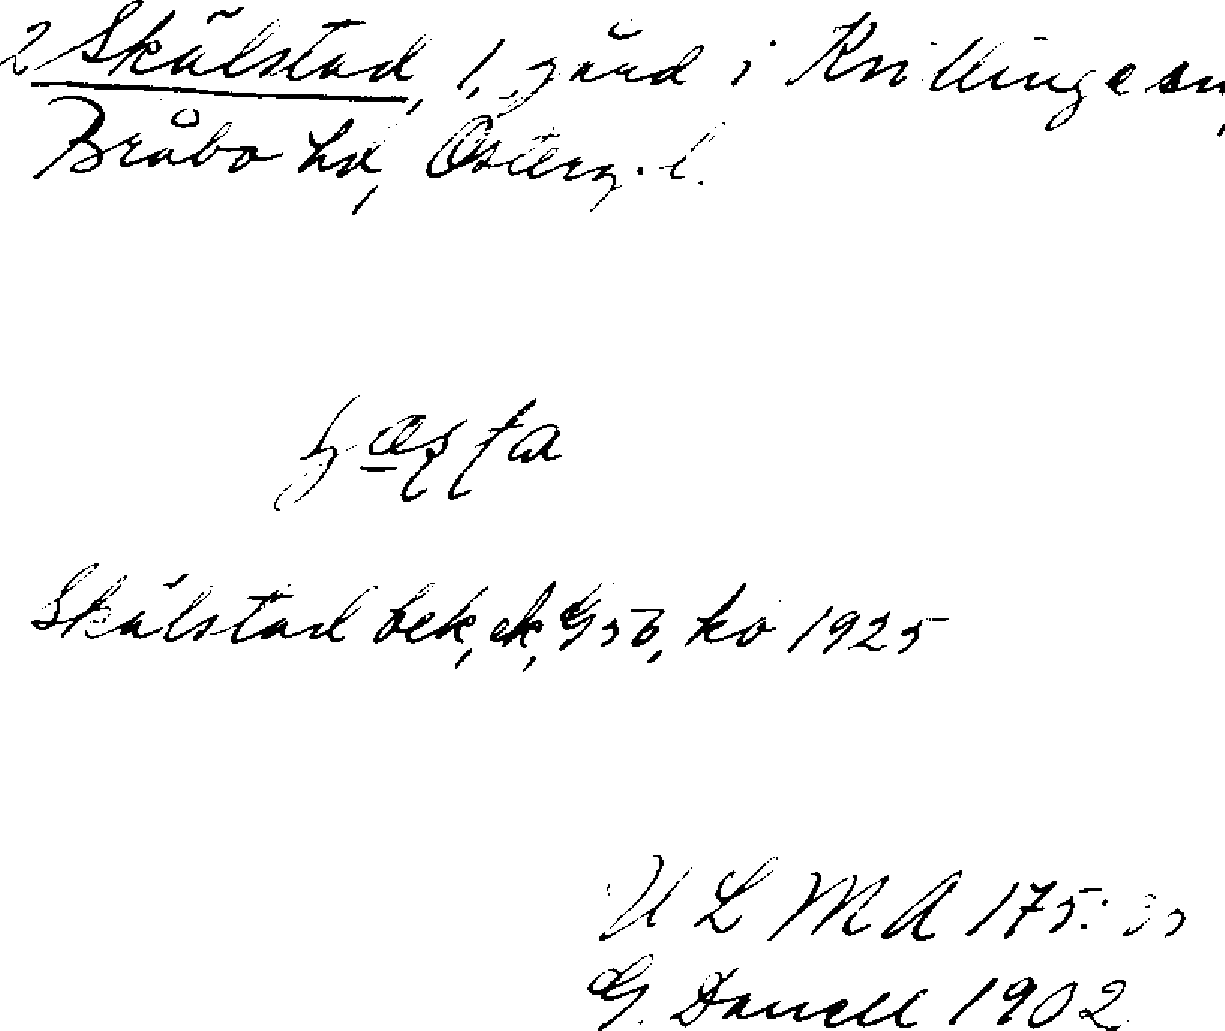 2 Skälstad, 1, gård i Kvillinge sn,
Bråbo hd, Österg. l.
Skälstad bek, ek, G 56, ko 1925
U L M A 175:
G. Danell 1902